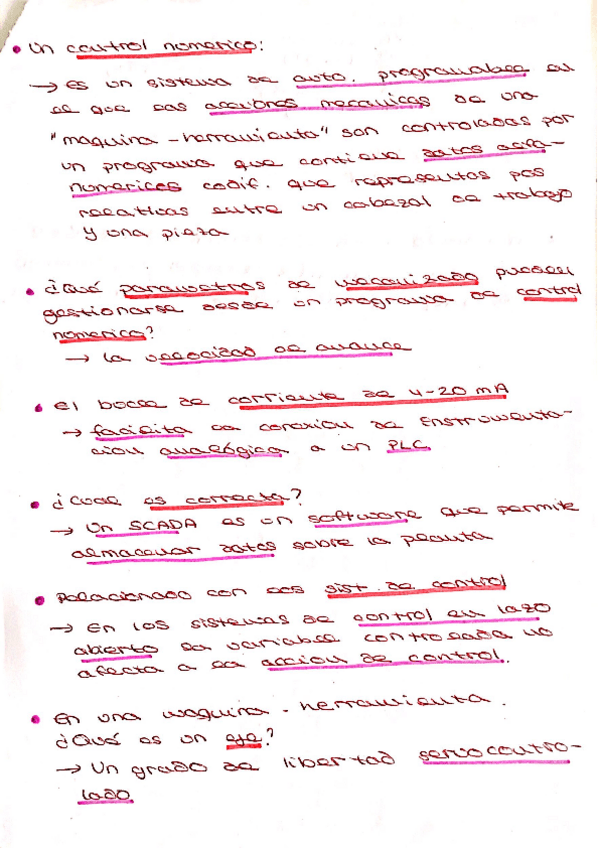 • Un control numerico:
→ Es un sistema de auto. programable en
el que las acciones mecanicas de una
"maquina-herramienta" son controladas por
un programa que contiene datos alfa-
numericos codif. que representas pos
relativas entre un cabezal de trabajo
y una pieza
• ¿Qué parametros de mecanizado pueden
gestionarse desde un programa de control
numerico?
→ La velocidad de avance
• El bucle de corriente de 4-20 mA
→ facilita la conexion de Enstrumenta-
cion analógica a un PLC
• ¿Cual es correcta?
→ Un SCADA es un software que permite
almacenar datos sobre la planta
• Relacionado con los sist. de control
→ En los sistemas de control en lazo
abierto la variable controlada no
afecta a la accion de control.
• En una maquina-herramienta.
¿Qué es un eje?
→ Un grado de libertad servocontro-
lado